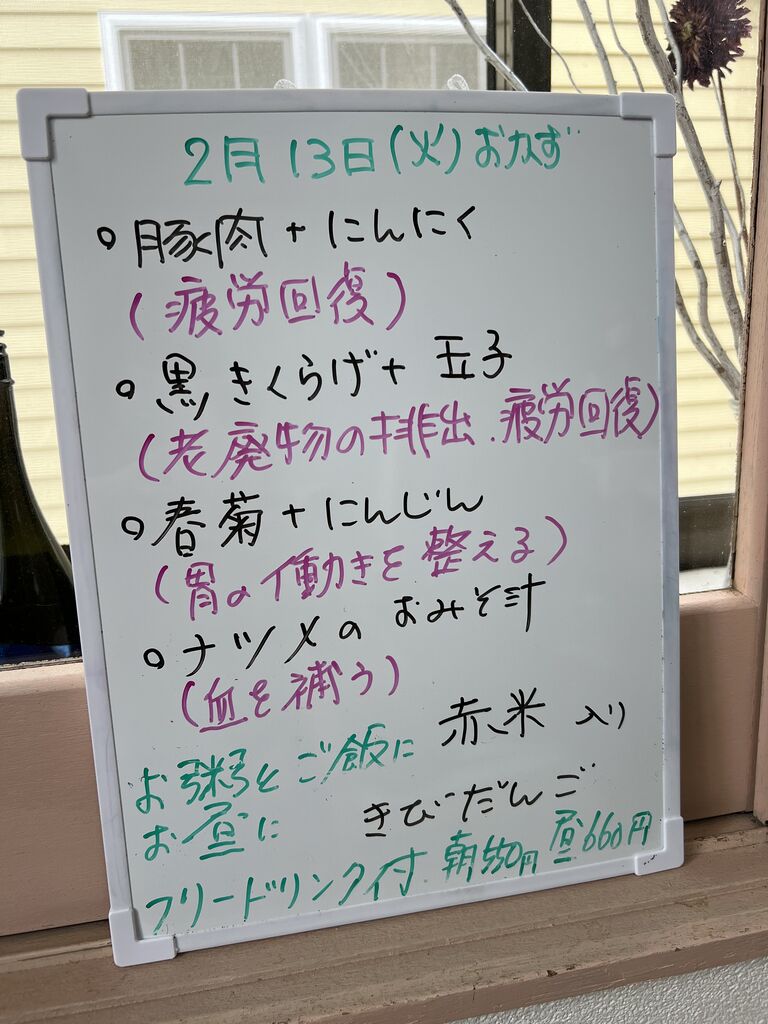 2月13日(火)おかず
○豚肉+にんにく
(疲労回復)
○黒きくらげ+玉子
(老廃物の排出.疲労回復)
○春菊+にんじん
(胃の働きを整える)
○ナツメのおみそ汁
(血を補う)
お粥とご飯に 赤米入り
お昼に きびだんご
フリードリンク付 朝550円 昼660円